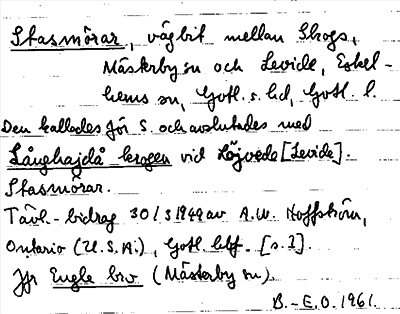 Stasmörar, vägbit mellan Skogs,
Mästerby sn och Levide, Eskel-
hems sn, Gotl. s. hd, Gotl. l.
Den kallades för S. och avslutades med
Långhajdå krogen vid Löjvede [Levide].
Stasmörar.
Tävl.-bidrag 30/3 1949 av A.W. Hoffström,
Ontario (U.S.A.), Gotl. lbf. [s. 2].
Jfr Engle bro (Mästerby sn).
B.-E.O. 1961.